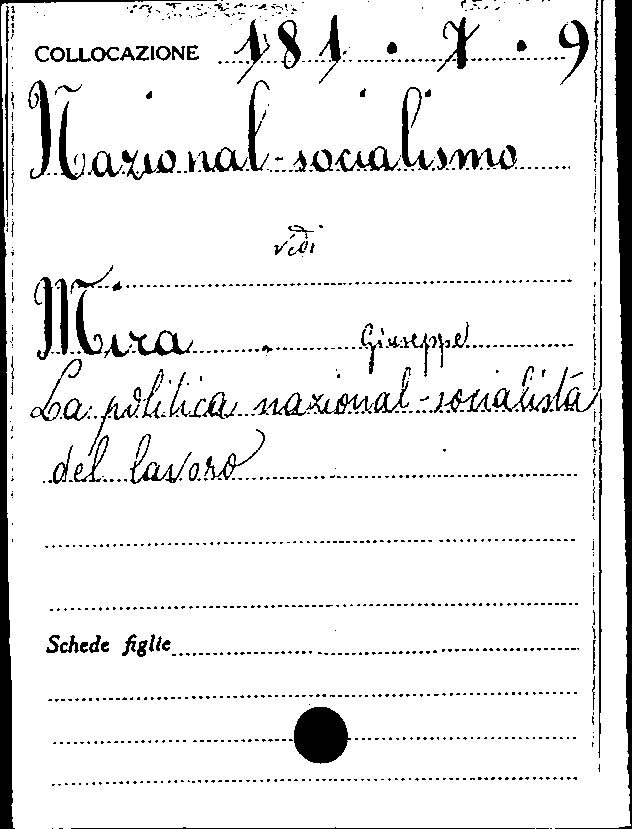 COLLOCAZIONE 181 . 7 . 9
Nazional-socialismo
vedi
Mira Giuseppe
La politica nazional-socialista
del lavoro
Schede figlie